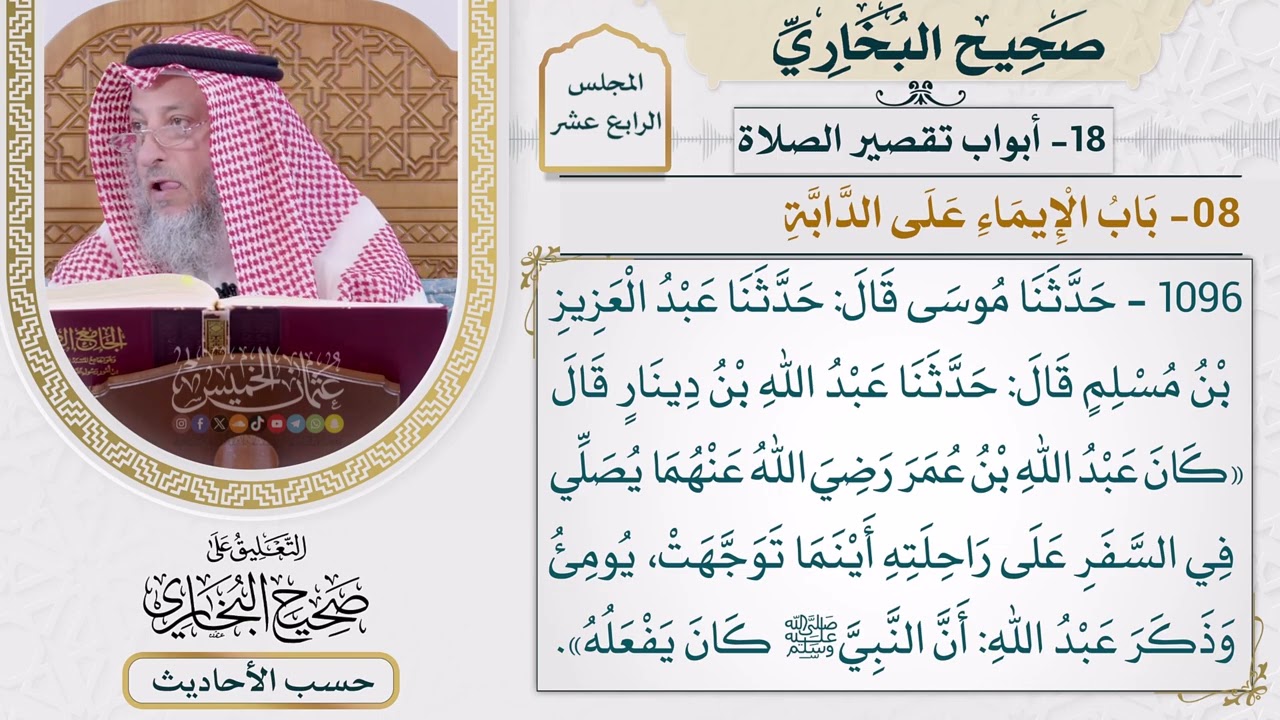 صَحِيح البُخَارِيِّ
المجلس
الرابع عشر
18- أبواب تقصير الصلاة
08- بَابُ الْإِيمَاءِ عَلَى الدَّابَّةِ
1096 - حَدَّثَنَا مُوسَى قَالَ: حَدَّثَنَا عَبْدُ الْعَزِيزِ
بْنُ مُسْلِمٍ قَالَ: حَدَّثَنَا عَبْدُ اللهِ بْنُ دِينَارٍ قَالَ
«كَانَ عَبْدُ اللهِ بْنُ عُمَرَ رَضِيَ اللهُ عَنْهُمَا يُصَلِّي
فِي السَّفَرِ عَلَى رَاحِلَتِهِ أَيْنَمَا تَوَجَّهَتْ، يُومِئُ
وَذَكَرَ عَبْدُ اللهِ: أَنَّ النَّبِيَّ ﷺ كَانَ يَفْعَلُهُ».
عُثمان الخميس
التَّعْلِيقُ عَلَى
صَحِيح البُخَارِي
حسب الأحاديث